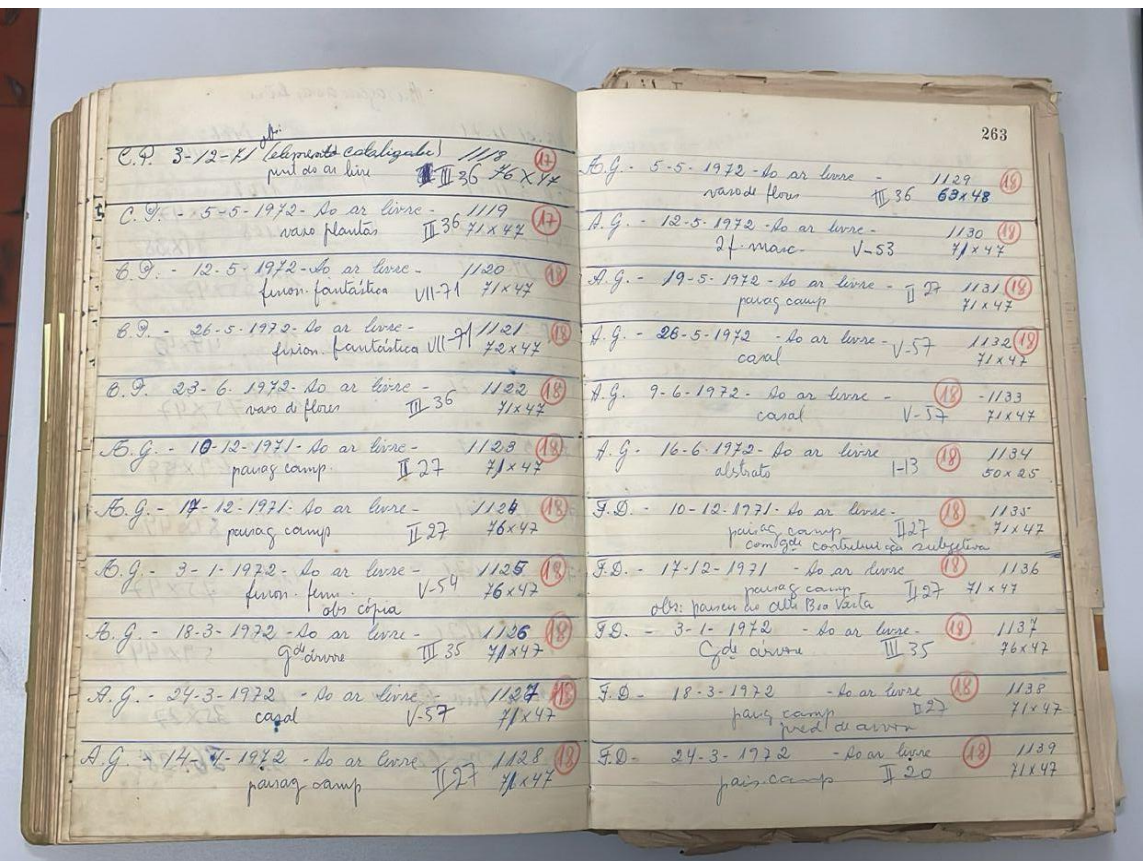 C.P. 3-12-71 (elemento catalogado) 1118 17
pint do ar livre III 36 76 x 47
C.P. - 5-5-1972 - Ao ar livre - 1119 17
vaso plantas III 36 71 x 47
C.P. - 12-5-1972 - Ao ar livre - 1120 18
fision. fantástica VII-71 71 x 47
C.P. - 26-5-1972 - Ao ar livre - 1121 18
fision. fantástica VII-71 72 x 47
C.P. 23-6-1972 - Ao ar livre - 1122 18
vaso de flores III 36 71 x 47
A.G. - 10-12-1971 - Ao ar livre - 1123 18
paisag camp. II 27 71 x 47
A.G. - 17-12-1971 - Ao ar livre - 1124 18
paisag camp II 27 76 x 47
A.G. - 3-1-1972 - Ao ar livre - 1125 18
fision. fem. V-54 76 x 47
obs cópia
A.G. - 18-3-1972 - Ao ar livre - 1126 18
gde árvore III 35 71 x 47
A.G. - 24-3-1972 - Ao ar livre - 1127 18
casal V-57 71 x 47
A.G. - 14-4-1972 - Ao ar livre 1128 18
paisag camp II 27 71 x 47
263
A.G. - 5-5-1972 - Ao ar livre - 1129 18
vaso de flores III 36 63 x 48
A.G. - 12-5-1972 - Ao ar livre - 1130 18
2f. masc - V-53 71 x 47
A.G. - 19-5-1972 - Ao ar livre - II 27 1131 18
paisag camp 71 x 47
A.G. - 26-5-1972 - Ao ar livre - V-57 1132 18
casal 71 x 47
A.G. - 9-6-1972 - Ao ar livre - 18 -1133
casal V-57 71 x 47
A.G - 16-6-1972 - Ao ar livre 18 1134
abstrato I-13 50 x 25
F.D. - 10-12-1971 - Ao ar livre - 18 1135
paisag camp II 27 71 x 47
com gde contribuição subjetiva
F.D. - 17-12-1971 - Ao ar livre 18 1136
paisag camp II 27 71 x 47
obs: passeio ao Alto Boa Vista
F.D. - 3-1-1972 - Ao ar livre - 18 1137
Gde árvore III 35 76 x 47
F.D - 18-3-1972 - Ao ar livre 18 1138
paisg camp II 27 71 x 47
pred. de arvore
F.D - 24-3-1972 - Ao ar livre 18 1139
pais-camp II 20 71 x 47